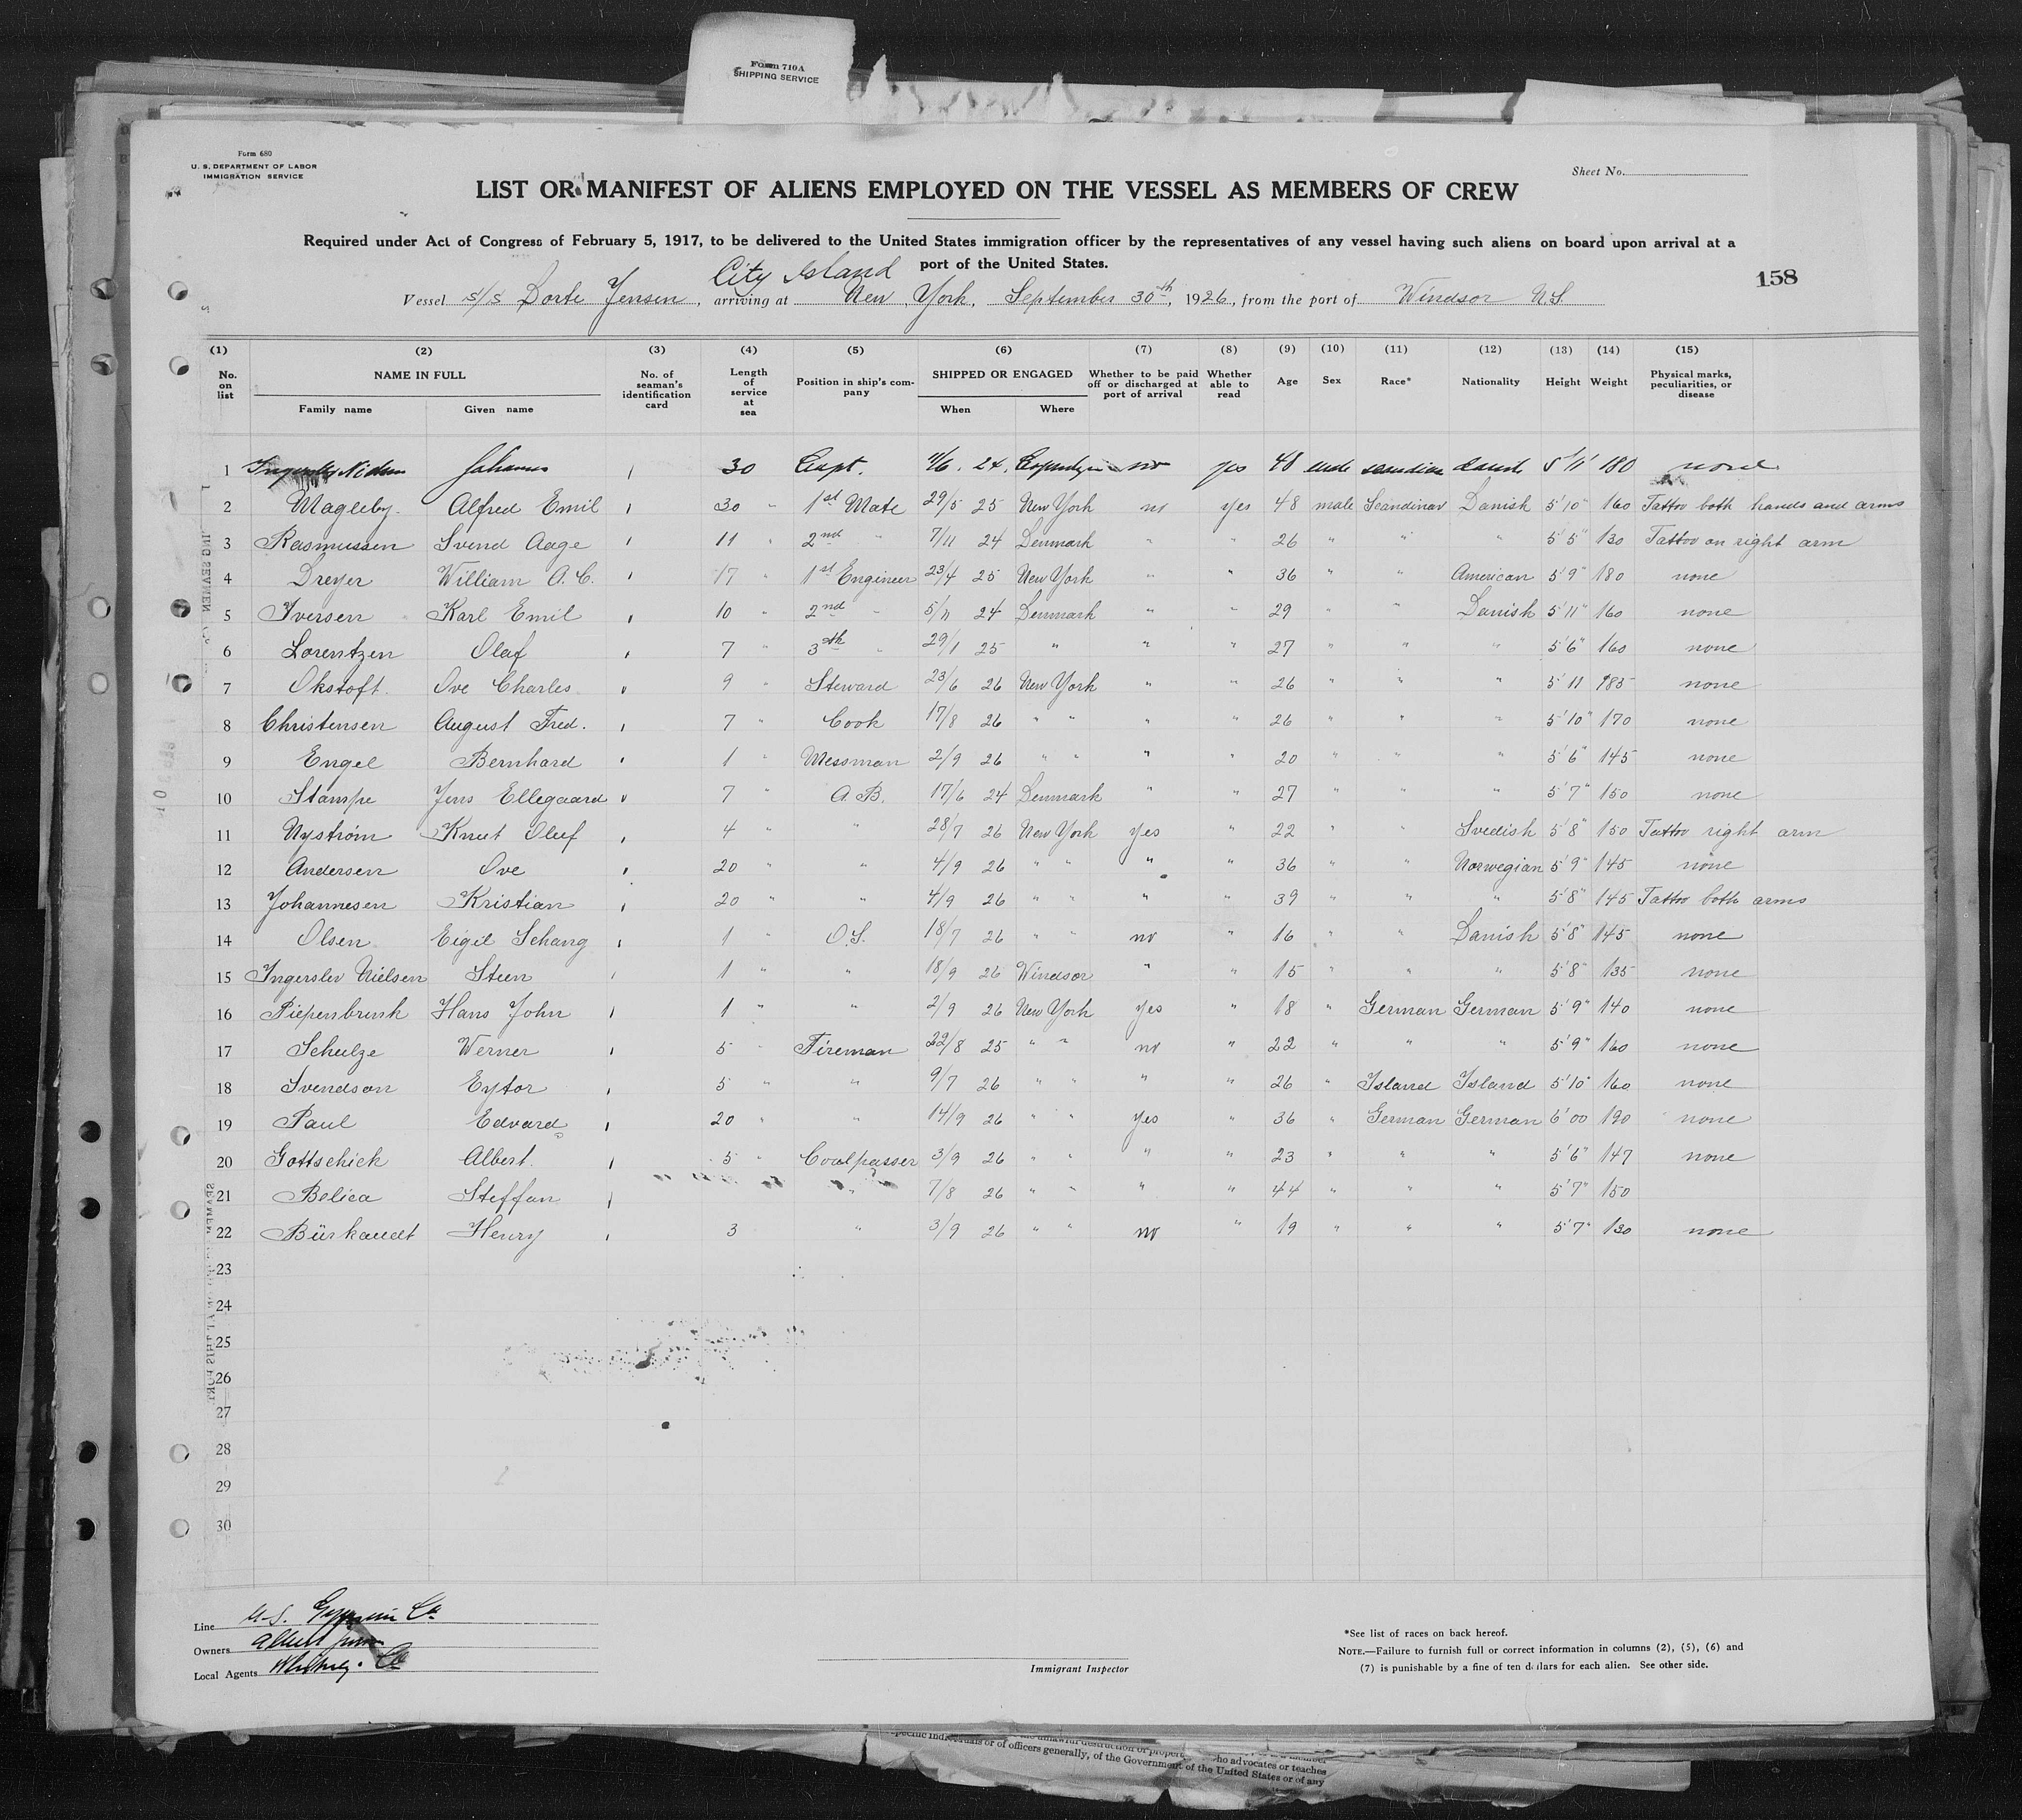 Form 710A
SHIPPING SERVICE
Form 680
U. S. DEPARTMENT OF LABOR
IMMIGRATION SERVICE
Sheet No.
LIST OR MANIFEST OF ALIENS EMPLOYED ON THE VESSEL AS MEMBERS OF CREW
Required under Act of Congress of February 5, 1917, to be delivered to the United States immigration officer by the representatives of any vessel having such aliens on board upon arrival at a
port of the United States.
City Island
158
Vessel s/s Dorte Jensen, arriving at New York, September 30th, 1926, from the port of Windsor N.S.
(1) (2) (3) (4) (5) (6) (7) (8) (9) (10) (11) (12) (13) (14) (15)
No. on list NAME IN FULL Family name Given name No. of seaman's identification card Length of service at sea Position in ship's company SHIPPED OR ENGAGED When Where Whether to be paid off or discharged at port of arrival Whether able to read Age Sex Race* Nationality Height Weight Physical marks, peculiarities, or disease
1 30 Capt. 24 no yes 48 5'11" 180 none
2 Magleby Alfred Emil 30 " 1st Mate 29/5 25 New York no yes 48 male Scandinav Danish 5'10" 160 Tattoo both hands and arms
3 Rasmussen Svend Aage 11 " 2nd " 7/11 24 Denmark " " 26 " " " 5'5" 130 Tattoo on right arm
4 Dreyer William A.C. 17 " 1st Engineer 23/4 25 New York " " 36 " " American 5'9" 180 none
5 Iversen Karl Emil 10 " 2nd " 5/11 24 Denmark " " 29 " " Danish 5'11" 160 none
6 Lorentzen Olaf 7 " 3th " 29/1 25 " " " 27 " " " 5'6" 160 none
7 Okstoft Ove Charles 9 " Steward 23/6 26 New York " " 26 " " " 5'11 185 none
8 Christensen August Fred. 7 " Cook 17/8 26 " " " " 26 " " " 5'10" 170 none
9 Engel Bernhard 1 " Messman 2/9 26 " " " " 20 " " " 5'6" 145 none
10 Stampe Jens Ellegaard 7 " A.B. 17/6 24 Denmark " " 27 " " " 5'7" 150 none
11 Nyström Knut Oluf 4 " " 28/7 26 New York Yes " 22 " " Svedish 5'8" 150 Tattoo right arm
12 Andersen Ove 20 " " 4/9 26 " " " " 36 " " Norwegian 5'9" 145 none
13 Johannesen Kristian 20 " " 4/9 26 " " " " 39 " " " 5'8" 145 Tattoo both arms
14 Olsen Eigil Schang 1 " O.S. 18/7 26 " " no " 16 " " Danish 5'8" 145 none
15 Ingerslev Nielsen Steen 1 " " 18/9 26 Windsor " " 15 " " " 5'8" 135 none
16 Piepenbrink Hans John 1 " " 2/9 26 New York Yes " 18 " German German 5'9" 140 none
17 Schulze Werner 5 " Fireman 22/8 25 " " no " 22 " " " 5'9" 160 none
18 Svendson Eytor 5 " " 9/7 26 " " " " 26 " Island Island 5'10" 160 none
19 Paul Edvard 20 " " 14/9 26 " " Yes " 36 " German German 6'00 190 none
20 Gottschick Albert. 5 " Coalpasser 3/9 26 " " " " 23 " " " 5'6" 147 none
21 Belica Steffan " 7/8 26 " " " " 44 " " " 5'7" 150
22 Bürkaudt Henry 3 " 3/9 26 " " no " 19 " " " 5'7" 130 none
23
24
25
26
27
28
29
30
Line U.S. Gypsum Co.
Owners
Local Agents
Immigrant Inspector
*See list of races on back hereof.
NOTE.—Failure to furnish full or correct information in columns (2), (5), (6) and
(7) is punishable by a fine of ten dollars for each alien. See other side.
or of officers generally, of the Government of the United States or of any